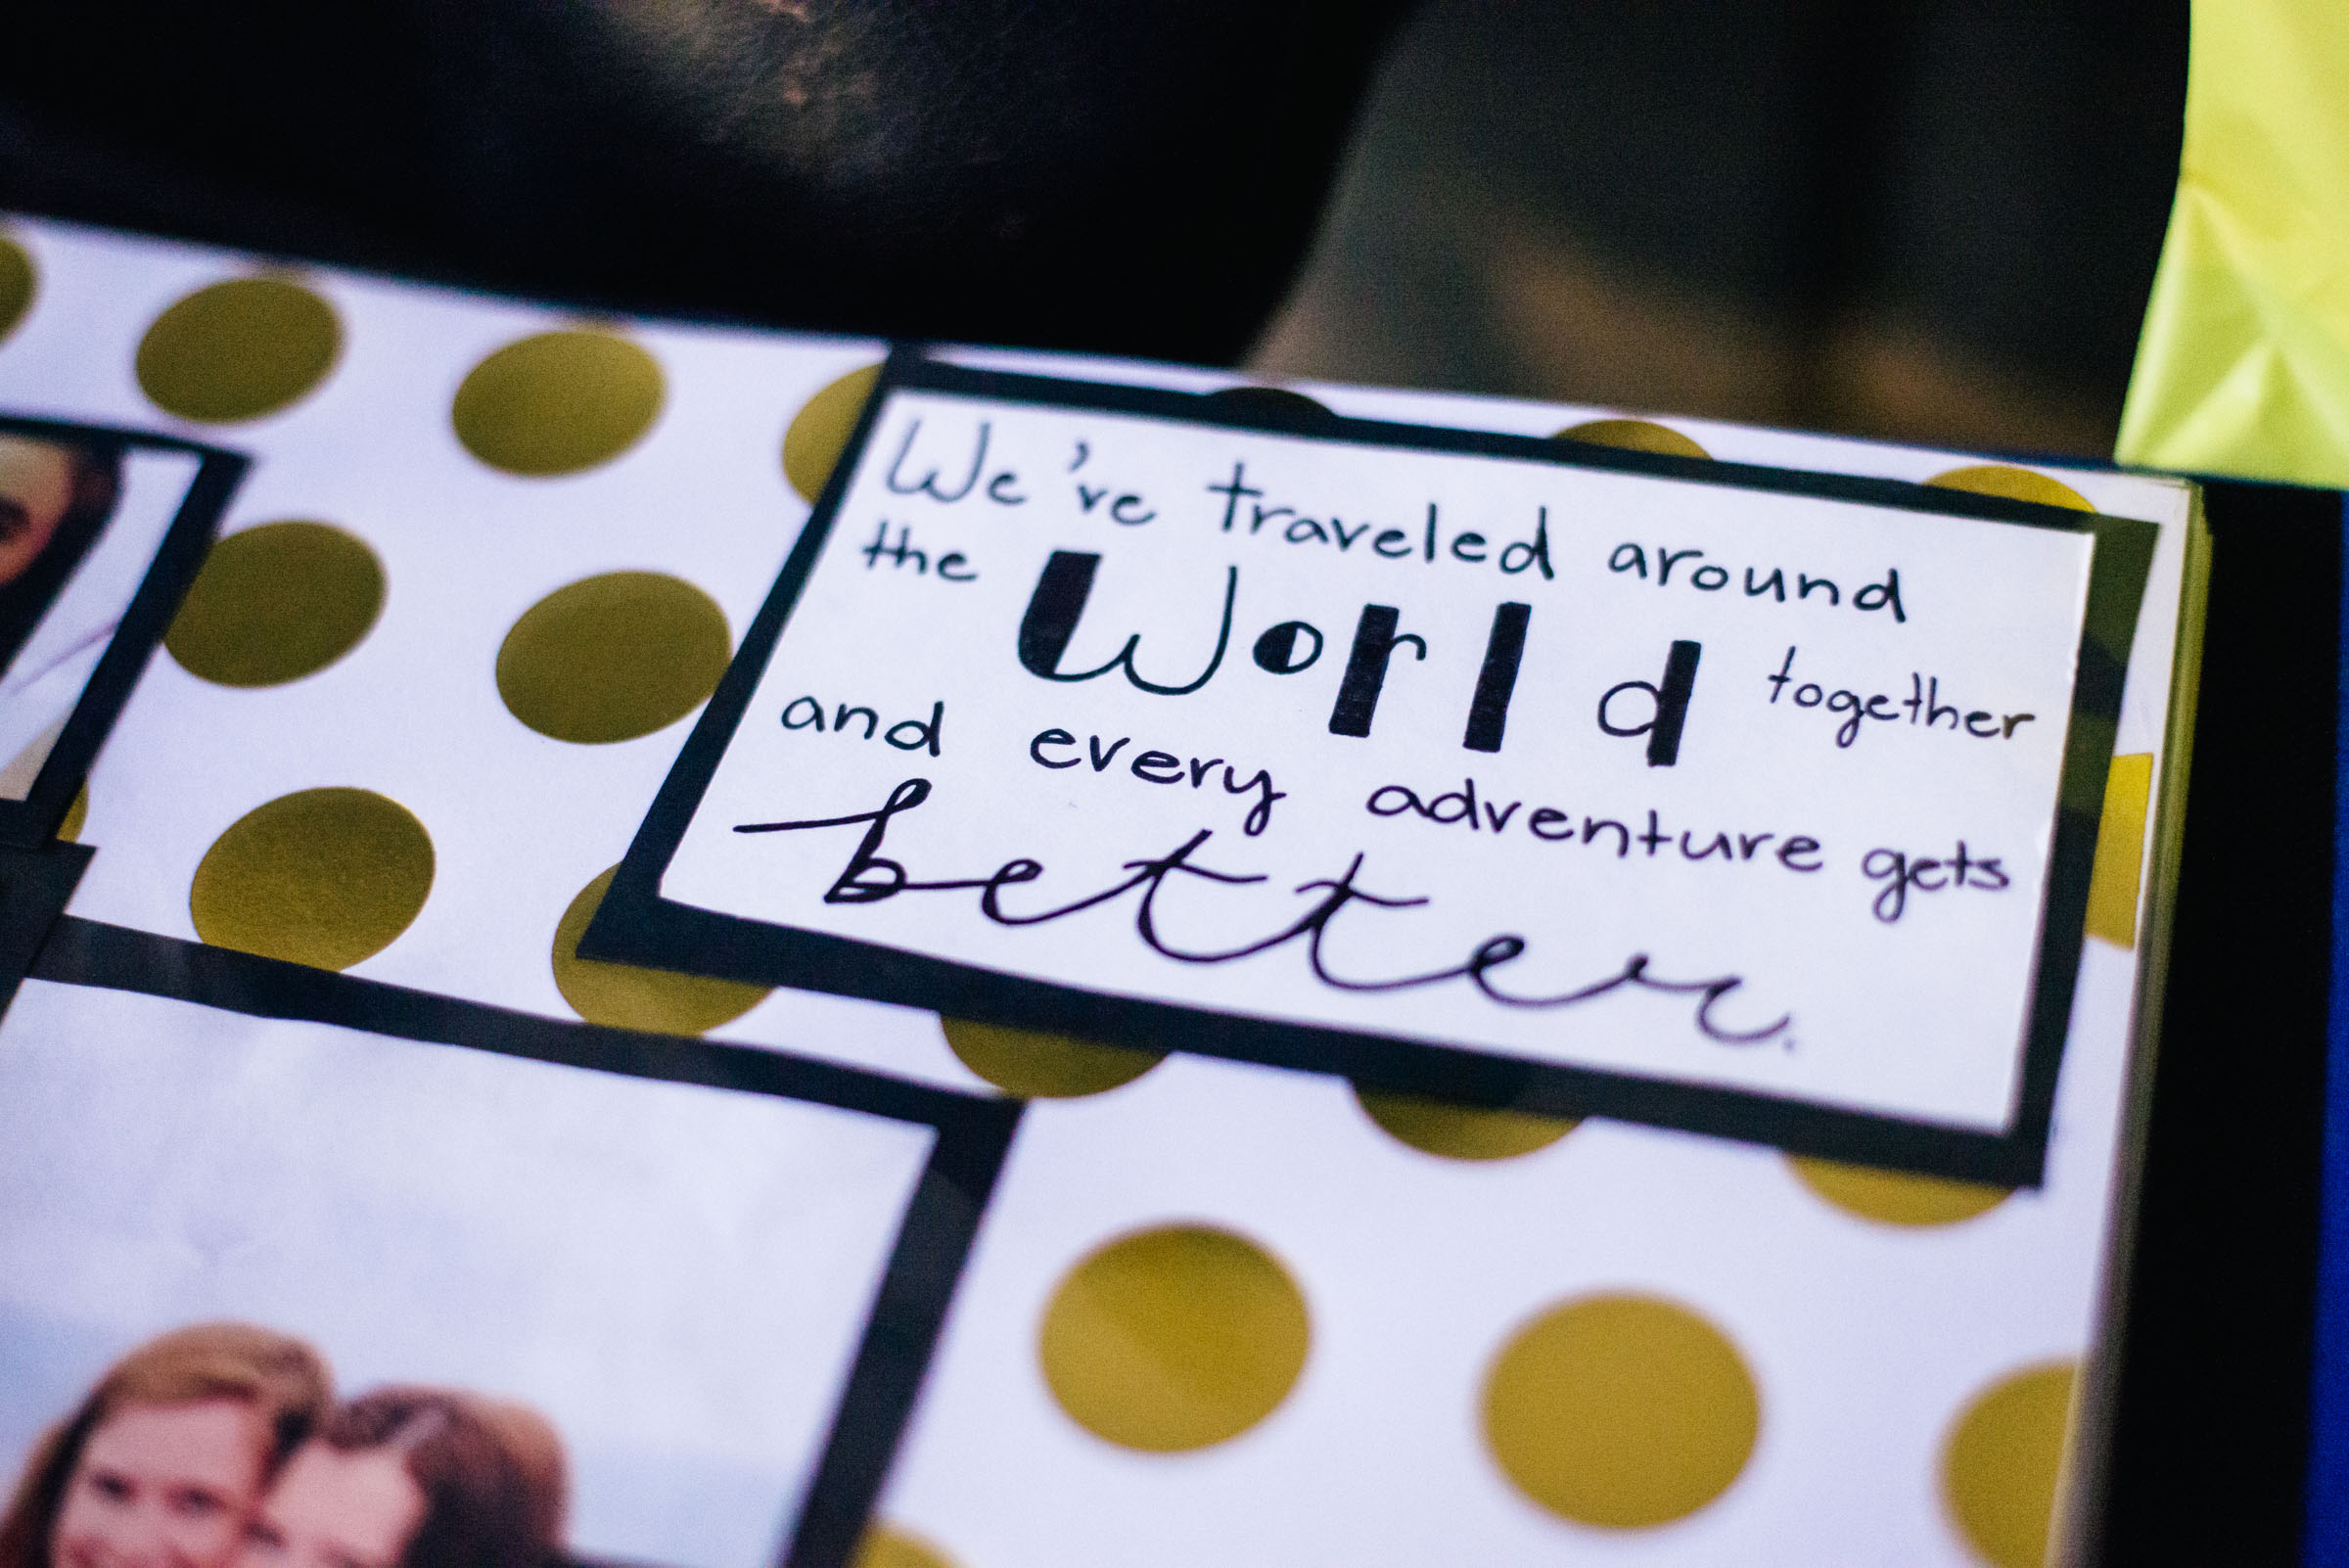 We've traveled around
the World together
and every adventure gets
better.